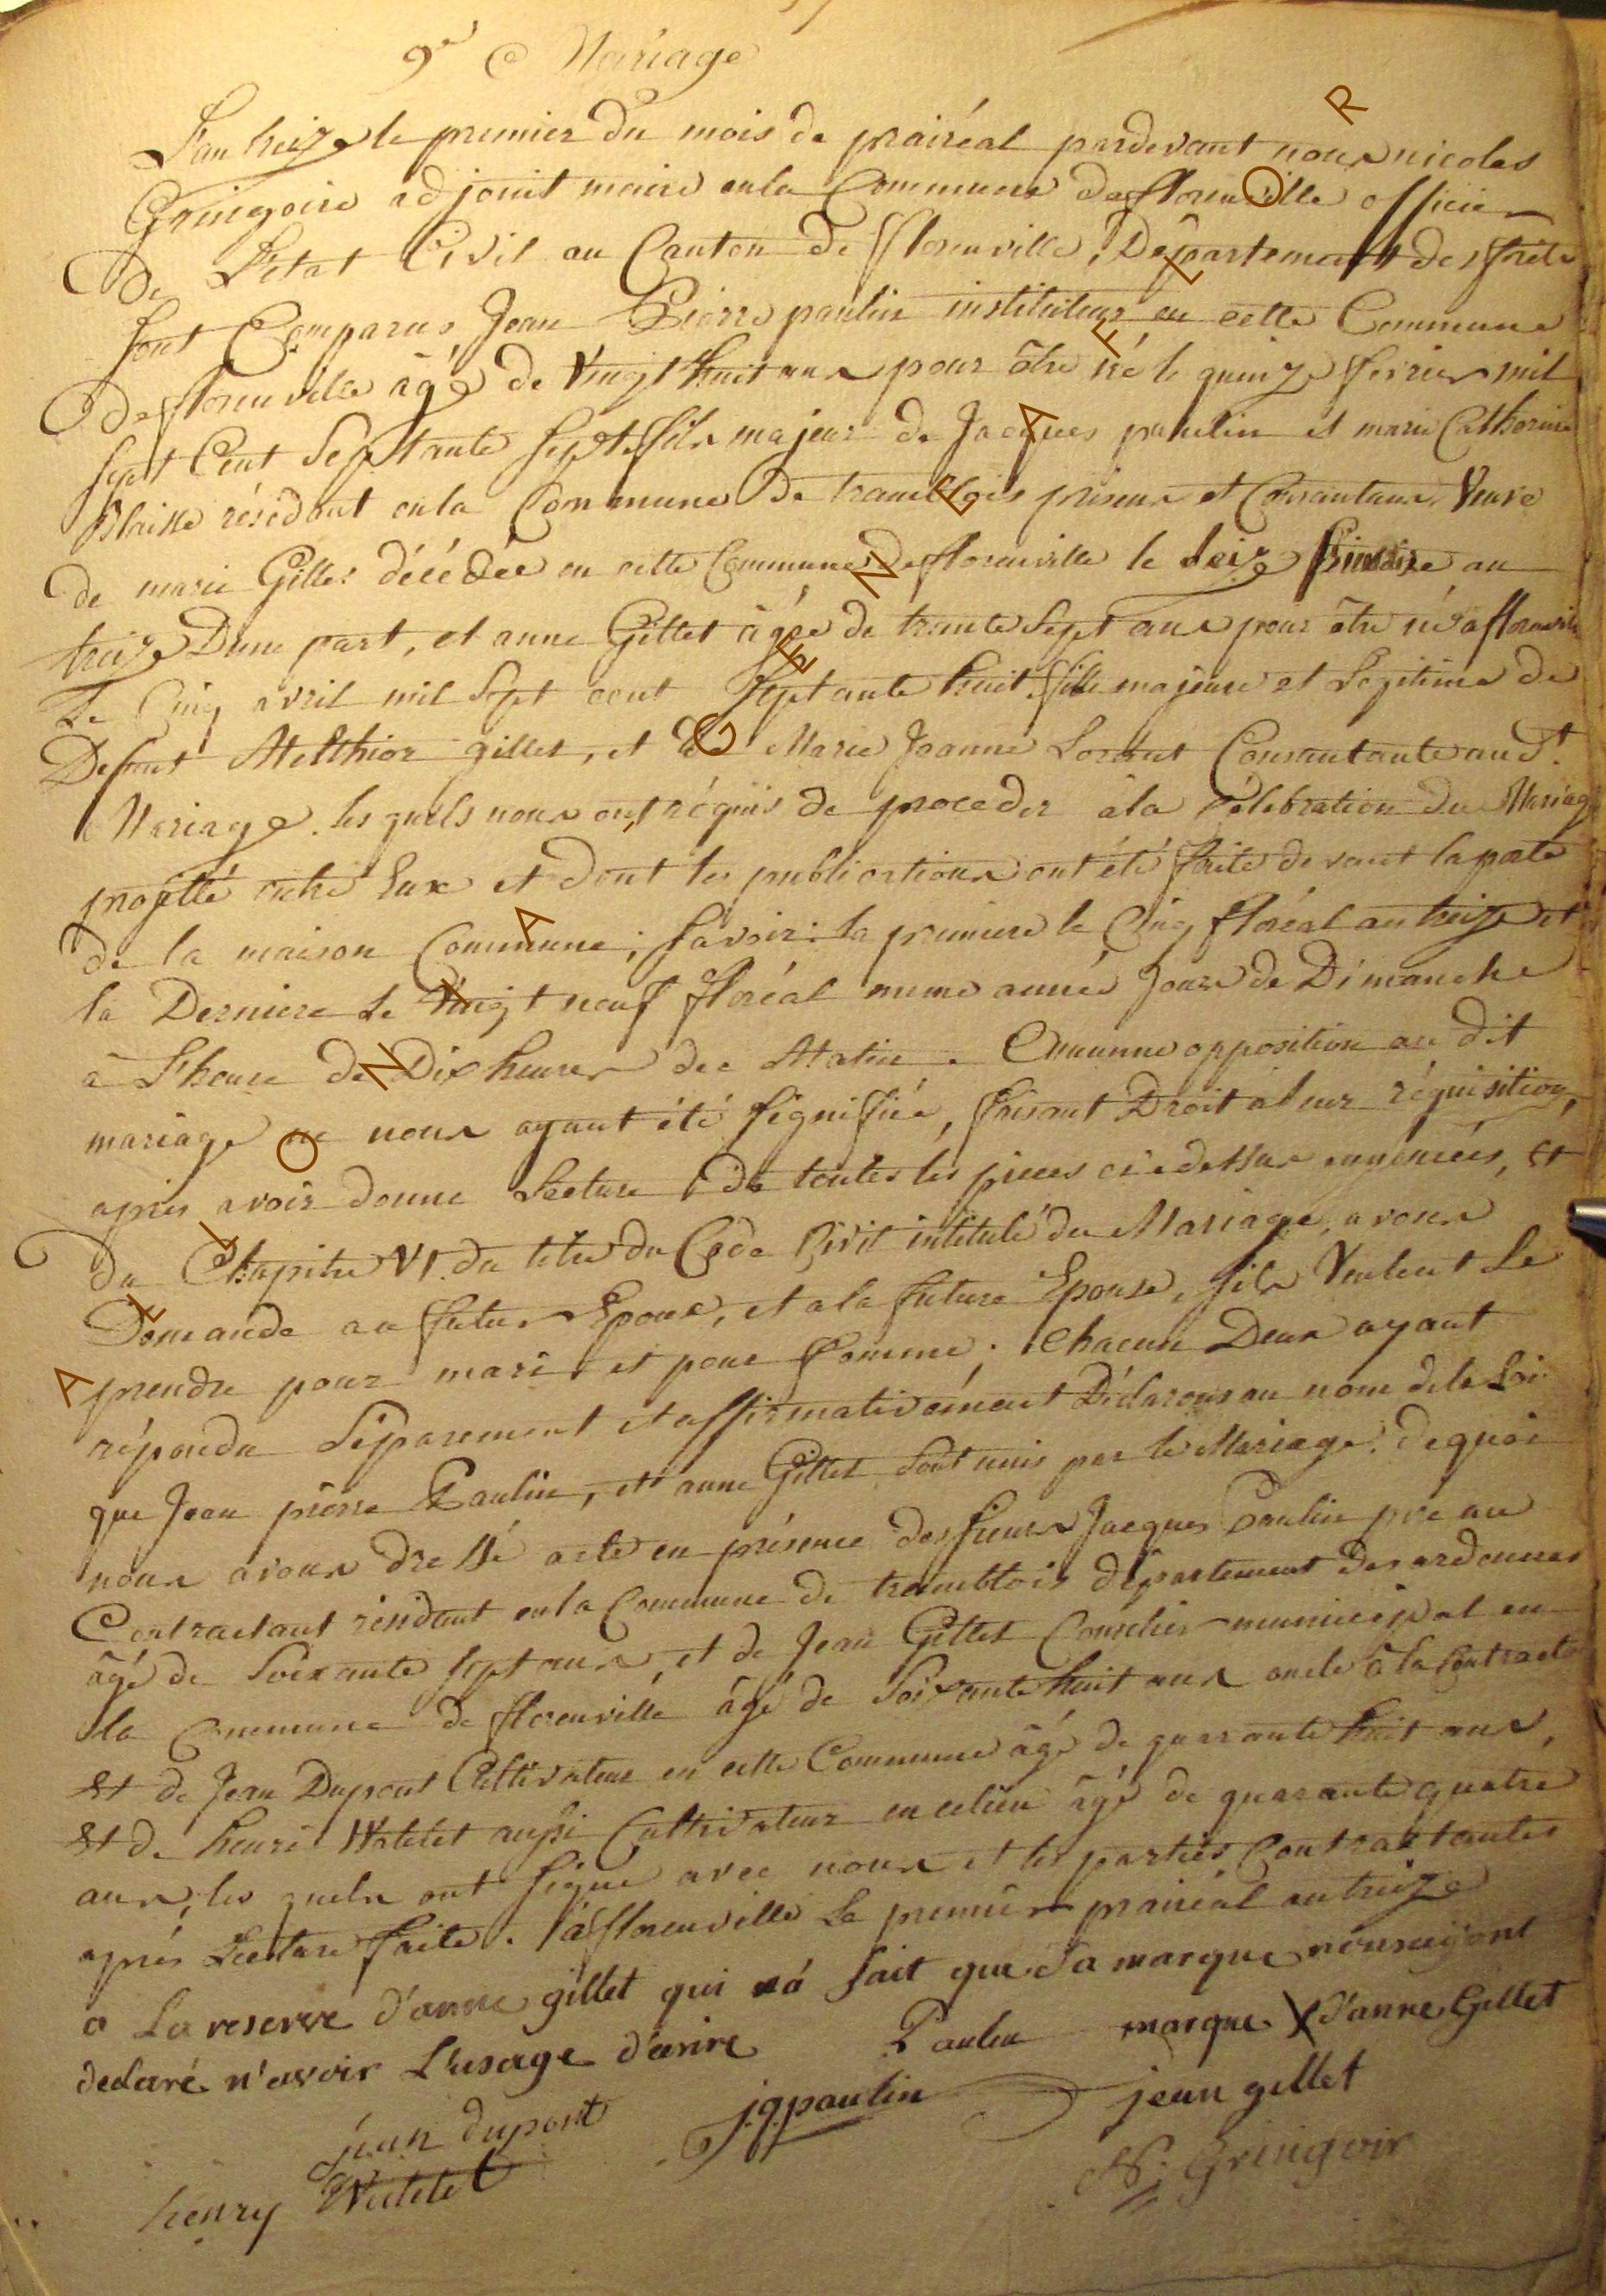 9e Mariage
L'an treize le premier du mois de prairéal pardevant nous nicolas
Gringoire adjoint maire en la Commune de florenville officier
De L'état Civil au Canton de florenville, Département des forêts
sont Comparus Jean Pierre paulin instituteur en cette Commune
De florenville âgé de Vingt huit ans pour être né le quinze fevrier mil
sept Cent Septante sept fils majeur de Jacques paulin et marie Catherine
Blaise résidant en la Commune De tremblois présens et Consentans, Veuve
de marie Gilles décédée en cette Commune De florenville le seize frimaire an
treize D'une part, et anne Gillet âgée de trante Sept ans pour être née a florenville
Le Cinq avril mil Sept cent Septante huit fille majeure et Légitime de
Defunt Melthior gillet, et de Marie Joanne Consentante audt.
Mariage. les quels nous ont réquis de proceder à la Célébration du Mariage
projetté entre Eux et Dont les publications ont été faite devant la porte
de la maison Commune; Savoir: la premiere le Cinq floréal an treize et
la Derniere Le Vingt neuf floréal meme année Jour de Dimanche
à L'heure De Dix heures du Matin. Aucunne opposition au dit
mariage ne nous ayant été Signifiée, faisant Droit a leur réquisition,
après avoir donné Lecture de toutes les pieces ci dessus enoncées, et
Du Chapitre VI. du titre du Code Civil intitulé du Mariage, avons
Demandé au futur Epoux, et a la future Epouse, s'ils Veulent Se
prendre pour mari et pour femme; Chacun Deux ayant
répondu Séparement et affirmativement Déclarons au nom de la Loi
que Jean pierre Paulin, et anne Gillet Sont unis par le Mariage. de quoi
nous avons Dressé acte en présence des sieurs Jacques Paulin pre au
Contractant résidant en la Commune de tremblois département des ardennes
âgé de Soixante sept ans, et de Jean Gillet Conseiller municipal en
la Commune de florenville âgé de Soixante huit ans oncle à la Contracte
Et de Jean Dupont Cultivateur en cette Commune âgé de quarante huit ans,
Et de henri Watelet aussi Cultivateur en celieu âgé de quarante quatre
ans, les quels ont Signé avec nous et les parties Contractantes
après Lecture faite. à florenville Le premier prairéal an treize
a La reserve d'anne gillet qui n'a fait que Sa marque nous ayant
declaré n'avoir L'usage d'écrire Paulin marque X d'anne Gillet
jean dupont j.p paulin jean gillet
henry Watelet N. Gringoir
ALLONZIAGENEAFLOR